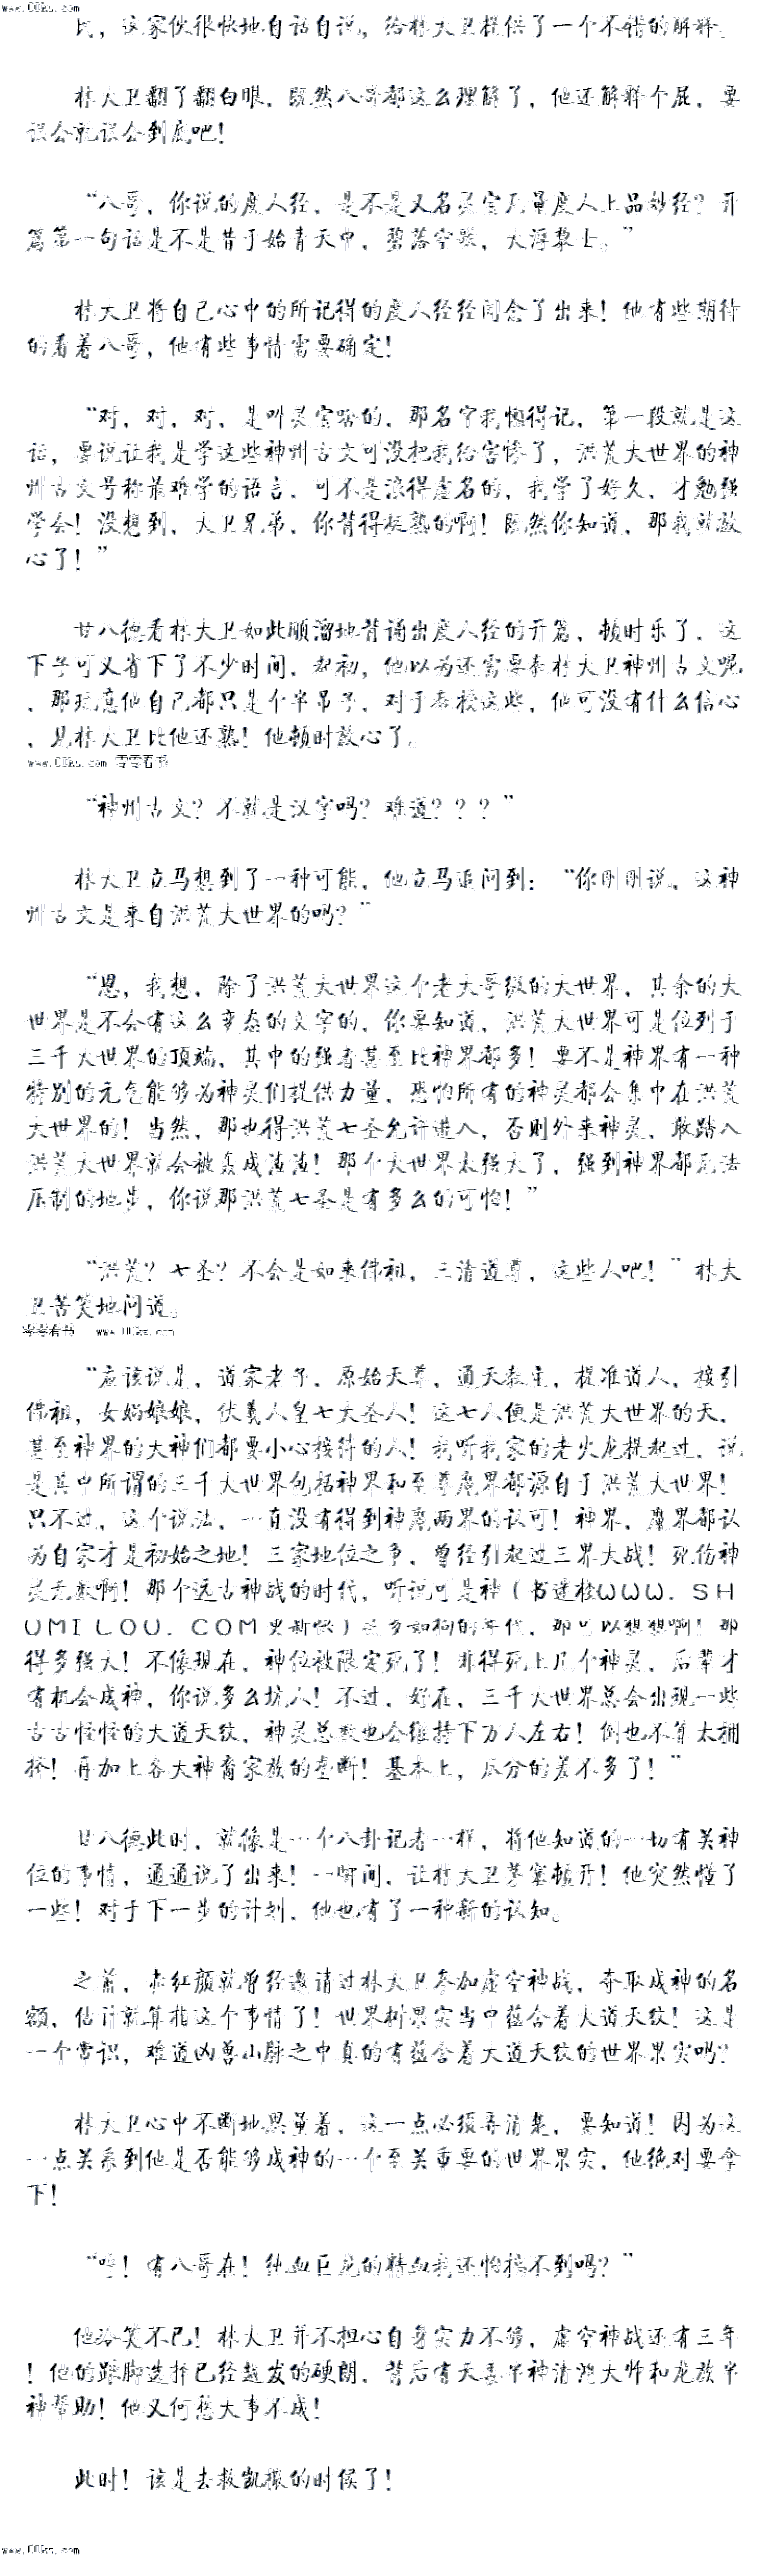 www.00ks.com
比，这家伙很快地自话自说，给林大卫提供了一个不错的解释。
林大卫翻了翻白眼，既然八哥都这么理解了，他还解释个屁，要
误会就误会到底吧！
“八哥，你说的度人经，是不是又名灵宝无量度人上品妙经？开
篇第一句话是不是昔于始青天中，碧落空歌，大浮黎土。”
林大卫将自己心中的所记得的度人经经闻念了出来！他有些期待
的看着八哥，他有些事情需要确定！
“对，对，对，是叫灵宝啥的，那名字我懒得记，第一段就是这
话，要说让我是学这些神州古文可没把我给害惨了，洪荒大世界的神
州古文号称最难学的语言，可不是浪得虚名的，我学了好久，才勉强
学会！没想到，大卫兄弟，你背得挺熟的啊！既然你知道，那我就放
心了！”
廿八德看林大卫如此顺溜地背诵出度人经的开篇，顿时乐了，这
下子可又省下了不少时间，起初，他以为还需要教林大卫神州古文呢
，那玩意他自己都只是个半吊子，对于教授这些，他可没有什么信心
，见林大卫比他还熟！他顿时放心了。
www.00ks.com 零零看书
“神州古文？不就是汉字吗？难道？？？”
林大卫立马想到了一种可能，他立马追问到：“你刚刚说，这神
州古文是来自洪荒大世界的吗？”
“恩，我想，除了洪荒大世界这个老大哥级的大世界，其余的大
世界是不会有这么变态的文字的，你要知道，洪荒大世界可是位列于
三千大世界的顶端，其中的强者甚至比神界都多！要不是神界有一种
特别的元气能够为神灵们提供力量，恐怕所有的神灵都会集中在洪荒
大世界的！当然，那也得洪荒七圣允许进入，否则外来神灵，敢踏入
洪荒大世界就会被轰成渣渣！那个大世界太强大了，强到神界都无法
压制的地步，你说那洪荒七圣是有多么的可怕！”
“洪荒？七圣？不会是如来佛祖，三清道尊，这些人吧！”林大
卫苦笑地问道。
零零看书 www.00ks.com
“应该说是，道家老子，原始天尊，通天教主，提准道人，接引
佛祖，女娲娘娘，伏羲人皇七大圣人！这七人便是洪荒大世界的天，
甚至神界的大神们都要小心接待的人！我听我家的老火龙提起过，说
是其中所谓的三千大世界包括神界和至尊魔界都源自于洪荒大世界！
只不过，这个说法，一直没有得到神魔两界的认可！神界，魔界都认
为自家才是初始之地！三家地位之争，曾经引起过三界大战！死伤神
灵无数啊！那个远古神战的时代，听说可是神（书迷楼ＷＷＷ．ＳＨ
ＵＭＩＬＯＵ．ＣＯＭ更新快）灵多如狗的年代，那可以想想啊！那
得多强大！不像现在，神位被限定死了！非得死上几个神灵，后辈才
有机会成神，你说多么坑人！不过，好在，三千大世界总会出现一些
古古怪怪的大道天纹，神灵总数也会维持下万人左右！倒也不算太拥
挤！再加上各大神裔家族的垄断！基本上，瓜分的差不多了！”
廿八德此时，就像是一个八卦记者一样，将他知道的一切有关神
位的事情，通通说了出来！一瞬间，让林大卫茅塞顿开！他突然懂了
一些！对于下一步的计划，他也有了一种新的认知。
之前，赤红颜就曾经邀请过林大卫参加虚空神战，夺取成神的名
额，估计就算指这个事情了！世界树果实当中蕴含着大道天纹！这是
一个常识，难道凶兽山脉之中真的有蕴含着大道天纹的世界果实吗？
林大卫心中不断地思量着，这一点必须弄清楚，要知道！因为这
一点关系到他是否能够成神的一个至关重要的世界果实，他绝对要拿
下！
“哼！有八哥在！纯血巨龙的精血我还怕搞不到吗？”
他冷笑不已！林大卫并不担心自身实力不够，虚空神战还有三年
！他的踏脚选择已经越发的硬朗，背后有天晨半神清鸿大师和龙族半
神帮助！他又何愁大事不成！
此时！该是去救凯撒的时候了！
www.00ks.com